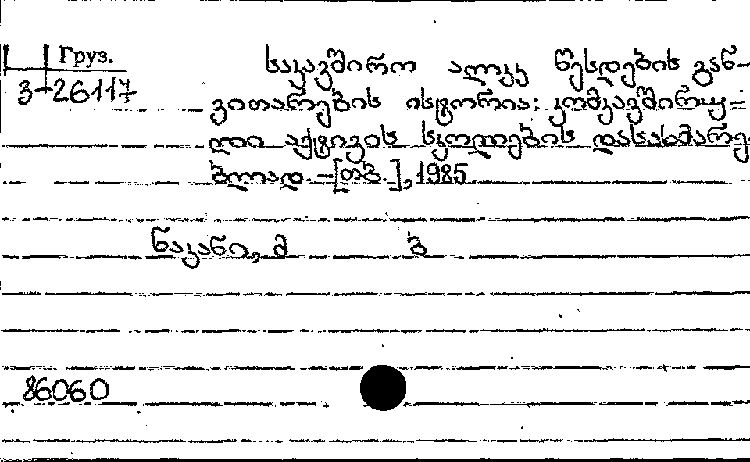 Груз.
3-26117
საკავშირო ალკკ წესდების გან-
ვითარების ისტორია: კომკავშირუ-
ლი აქტივის სკოლების დასახმარე-
ბლად. -[თბ.], 1985.
ნაკანი, მ ბ
86060